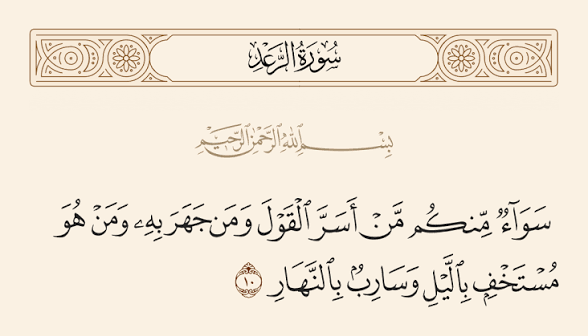 سُورَةُ الرَّعْدِ
بِسْمِ اللَّهِ الرَّحْمَٰنِ الرَّحِيمِ
سَوَآءٌ مِّنكُم مَّنْ أَسَرَّ ٱلْقَوْلَ وَمَن جَهَرَ بِهِۦ وَمَنْ هُوَ
مُسْتَخْفٍۭ بِٱلَّيْلِ وَسَارِبٌۢ بِٱلنَّهَارِ ١٠